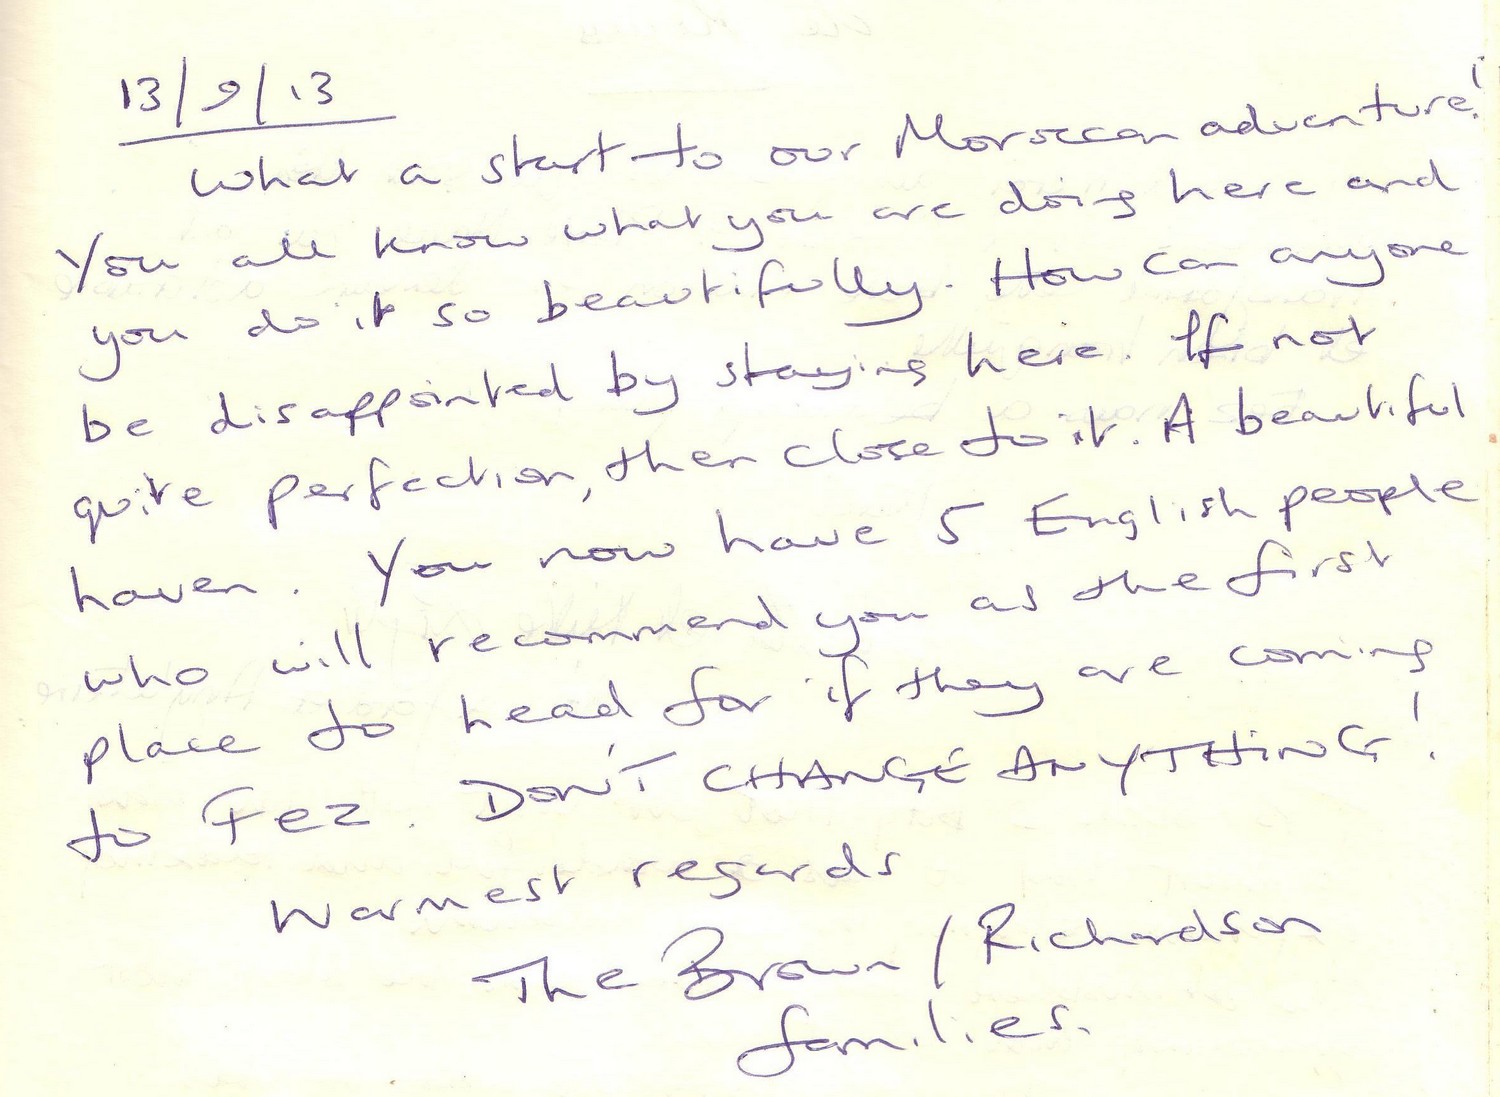 13/9/13
What a start to our Moroccan adventure!
You all know what you are doing here and
you do it so beautifully. How can anyone
be disappointed by staying here. If not
quite perfection, then close to it. A beautiful
haven. You now have 5 English people
who will recommend you as the first
place to head for if they are coming
to Fez. DON'T CHANGE ANYTHING!
Warmest regards
The Brown / Richardson
families.